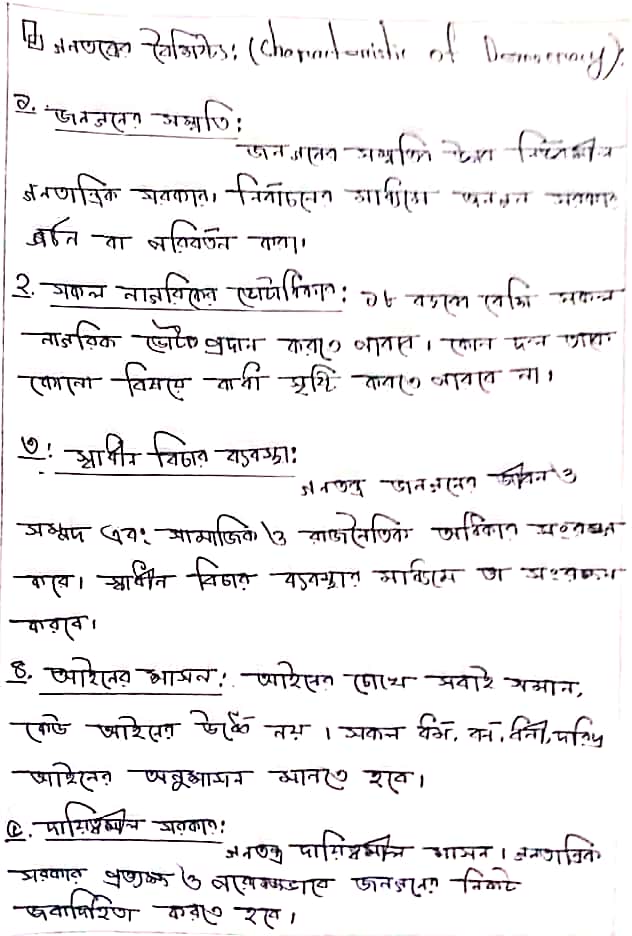 গনতন্ত্রের বৈশিষ্ট্য: (Characteristic of Democracy):
১. জনগনের সম্মতি:
জনগনের সম্মতির উপর নির্ভরশীল
গনতান্ত্রিক সরকার। নির্বাচনের মাধ্যিমে জনগন সরকার
গঠন বা পরিবর্তন করে।
২. সকল নাগরিকের ভোটাধিকার: ১৮ বছরের বেশি সকল
নাগরিক ভোট প্রদান করতে পারবে। কোন দল তাদের
কোনো বিষয়ে বাধা সৃষ্টি করতে পারবে না।
৩: স্বাধীন বিচার ব্যবস্থা:
গনতন্ত্র জনগনের জীবন ও
সম্পদ এবং সামাজিক ও রাজনৈতিক অধিকার সংরক্ষন
করে। স্বাধীন বিচার ব্যবস্থার মাধ্যিমে তা সংরক্ষন
করবে।
৪. আইনের শাসন: আইনের চোখে সবাই সমান,
কেউ আইনের উর্ধ্বে নয়। সকল ধর্ম, বর্ন, ধনী, দরিদ্র
আইনের অনুশাসন মানতে হবে।
৫. দায়িত্বশীল সরকার:
গনতন্ত্র দায়িত্বশীল শাসন। গনতান্ত্রিক
সরকার প্রত্যক্ষ ও পরোক্ষভাবে জনগনের নিকট
জবাবদিহিতা করতে হবে।